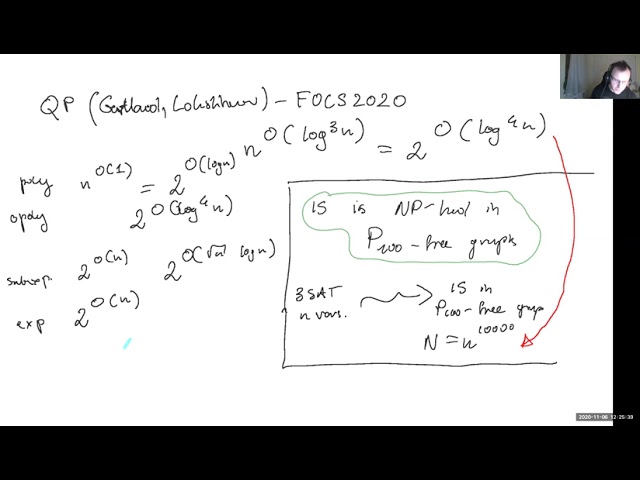 QP (Gartland, Lokshtanov) – FOCS2020
n^O(log^3 n) = 2^O(log^4 n)
poly n^O(1) = 2^O(log n)
qpoly 2^O(log^4 n)
subexp. 2^o(n) 2^O(√n log n)
exp 2^O(n)
IS is NP-hard in
P_100-free graphs
3SAT
n vars.
IS in
P_100-free graphs
N = n^10000
2020-11-06 12:25:39